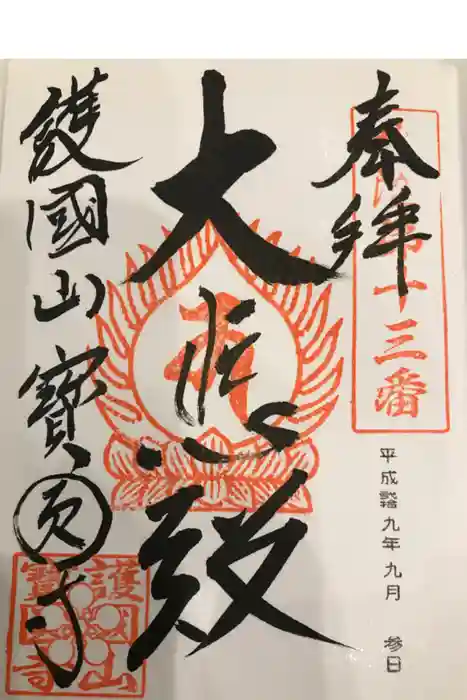 奉拝
十三番
平成 九年 九月 参日
大悲殿
護國山 寶圓寺
護國山寶寺